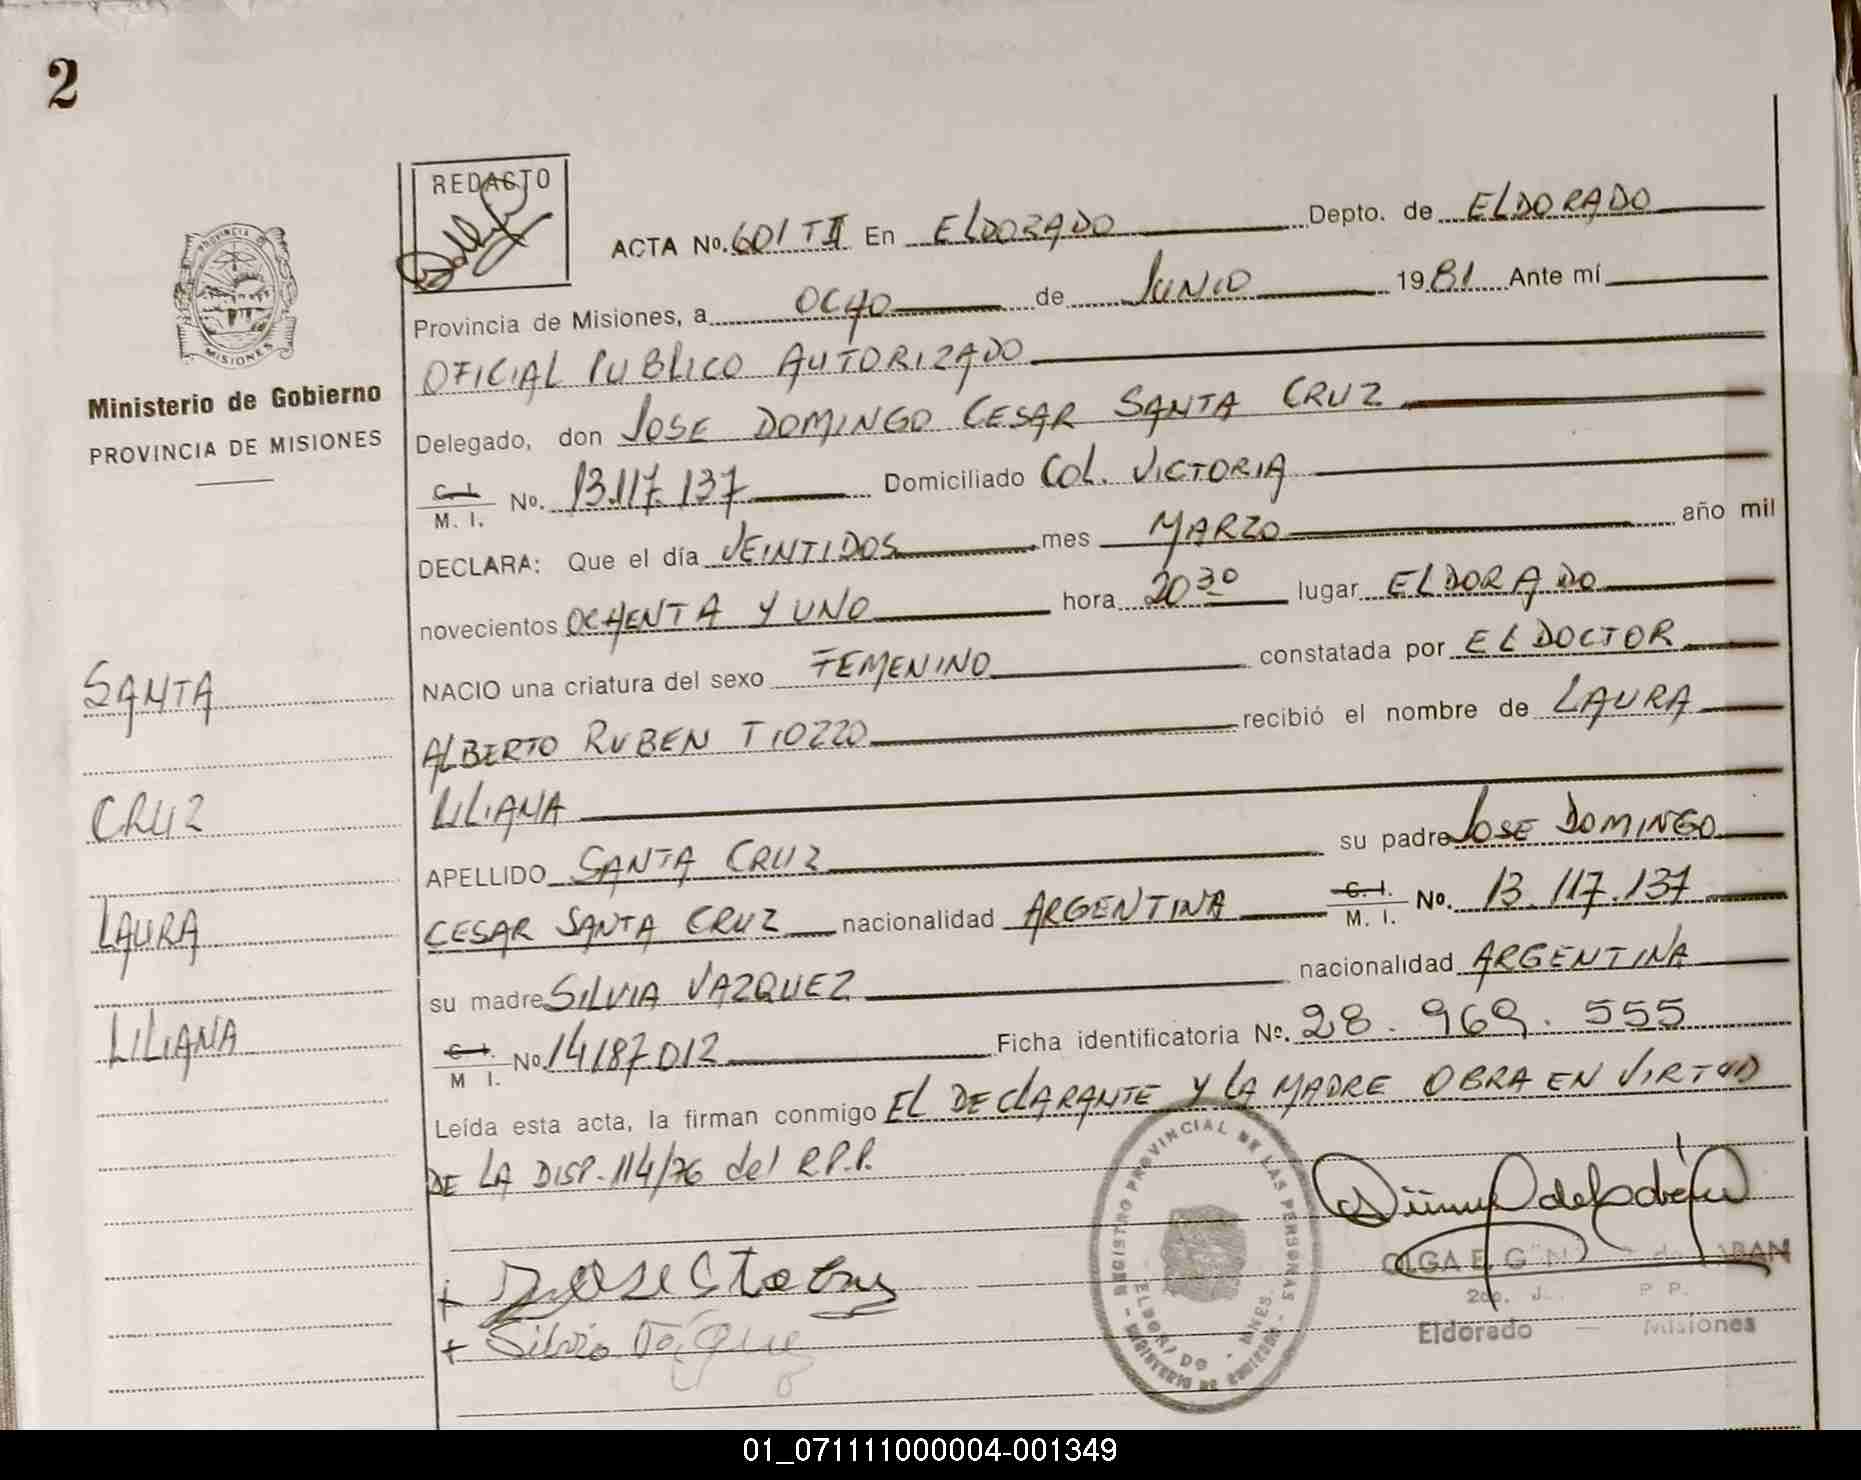 2
REDACTO
ACTA No. 601 TII En ELDORADO Depto. de ELDORADO
Provincia de Misiones, a OCHO de JUNIO 1981 Ante mí
OFICIAL PUBLICO AUTORIZADO
Delegado, don JOSE DOMINGO CESAR SANTA CRUZ
C. I. M. I. No. 13.117.137 Domiciliado COL. VICTORIA
DECLARA: Que el día VEINTIDOS mes MARZO año mil
novecientos OCHENTA Y UNO hora 20 30 lugar ELDORADO
NACIO una criatura del sexo FEMENINO constatada por EL DOCTOR
ALBERTO RUBEN TIOZZO recibió el nombre de LAURA
LILIANA
APELLIDO SANTA CRUZ su padre JOSE DOMINGO
CESAR SANTA CRUZ nacionalidad ARGENTINA C. I. M. I. No. 13.117.137
su madre SILVIA VAZQUEZ nacionalidad ARGENTINA
C. I. M I. No. 14187012 Ficha identificatoria No. 28.969.555
Leída esta acta, la firman conmigo EL DECLARANTE Y LA MADRE OBRA EN VIRTUD
DE LA DISP. 114/76 del R.P.P.
PROVINCIA DE
MISIONES
Ministerio de Gobierno
PROVINCIA DE MISIONES
SANTA
CRUZ
LAURA
LILIANA
+ Silvia Vázquez
REGISTRO PROVINCIAL DE LAS PERSONAS
ELDORADO - MNES.
MINISTERIO DE GOBIERNO
OLGA E. G
2do. J
P P.
Eldorado — Misiones
01_071111000004-001349